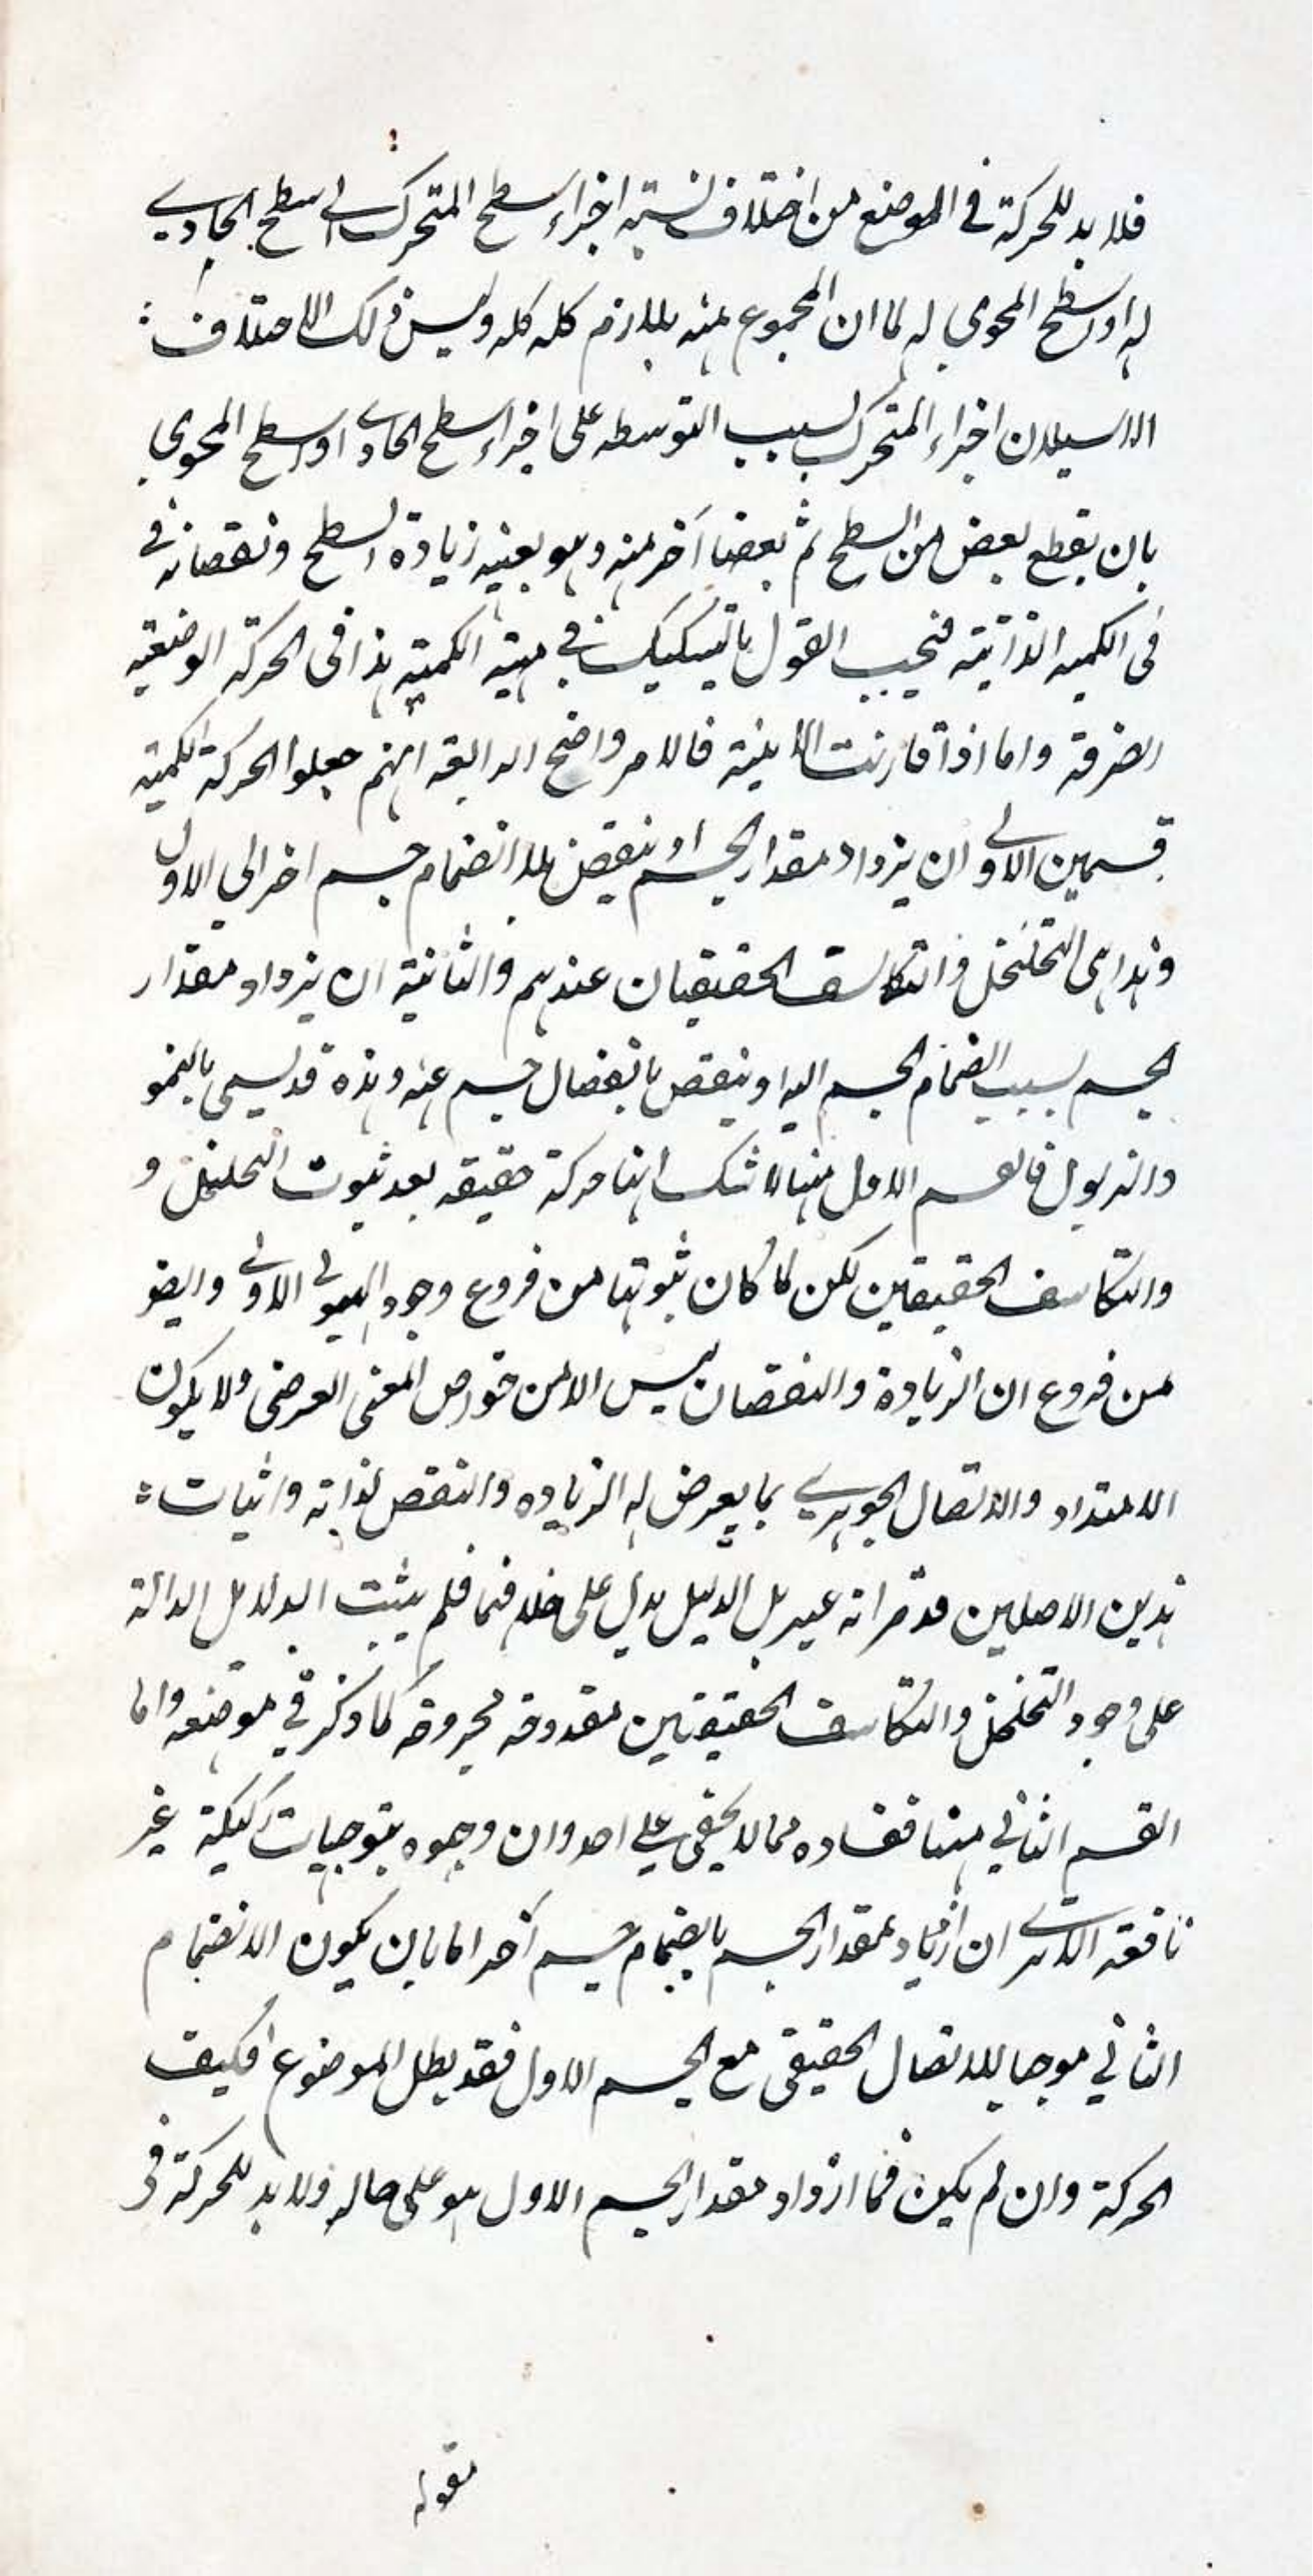 فلا بد للحركة في الموضع من اختلاف نسبة اجزاء سطح المتحرك الى سطح الحاوي
له او سطح المحوي له لما ان المجموع منه يلازم كله كله وليس ذلك الاختلاف :
الا سيلان اجزاء المتحرك بسبب التوسطه على اجزاء سطح الحاوي او سطح المحوي
بان يقطع بعض من السطح ثم بعضا آخر منه وهو بعينه زيادة السطح ونقصانه في
في الكميه الذاتية فيجب القول بالتشكيك في مهية الكمية هذا في الحركة الوضعية
الصرفة واما اذا قارنت الاينية فالامر واضح انهم جعلوا الحركة الكمية
قسمين الاولى ان يزداد مقدار الجسم او ينقص بلا انضمام جسم اخر الى الاول
وهذا هى التخلخل والتكاثف الحقيقيان عندهم والثانية ان يزداد مقدار
الجسم بسبب انضمام الجسم اليه او ينقص بانفصال جسم عنه وهذه قد يسمى بالنمو
والذبول فالقسم الاول منها لا شك انها حركة حقيقه بعد ثبوت التخلخل و
والتكاثف الحقيقين لكن لما كان ثبوتها من فروع وجود الهيولى الاولى وايضو
من فروع ان الزيادة والنقصان ليس الا من خواص المعنى العرضى ولا يكون
الامتداد والاتصال الجوهري بما يعرض له الزياده والنقص لذاته واثبات :
هذين الاصلين قد مر انه عسير بل الدليل يدل على خلافهما فلم يثبت الدلايل الدالة
على وجود التخلخل والتكاثف الحقيقيين مقدوحه مجروحه كما ذكر في موضعه واما
القسم الثاني منها ففساده مما لا يخفى على احد وان وجهوه بتوجيهات ركيكة غير
نافعة الا ترى ان ازدياد مقدار الجسم بانضمام جسم آخر اما بان يكون الانضمام
الثاني موجبا للاتصال الحقيقى مع الجسم الاول فقد بطل الموضوع افكيف
الحركة وان لم يكن فما ازداد مقدار الجسم الاول هو على حاله ولا بد للحركة في
مقوله